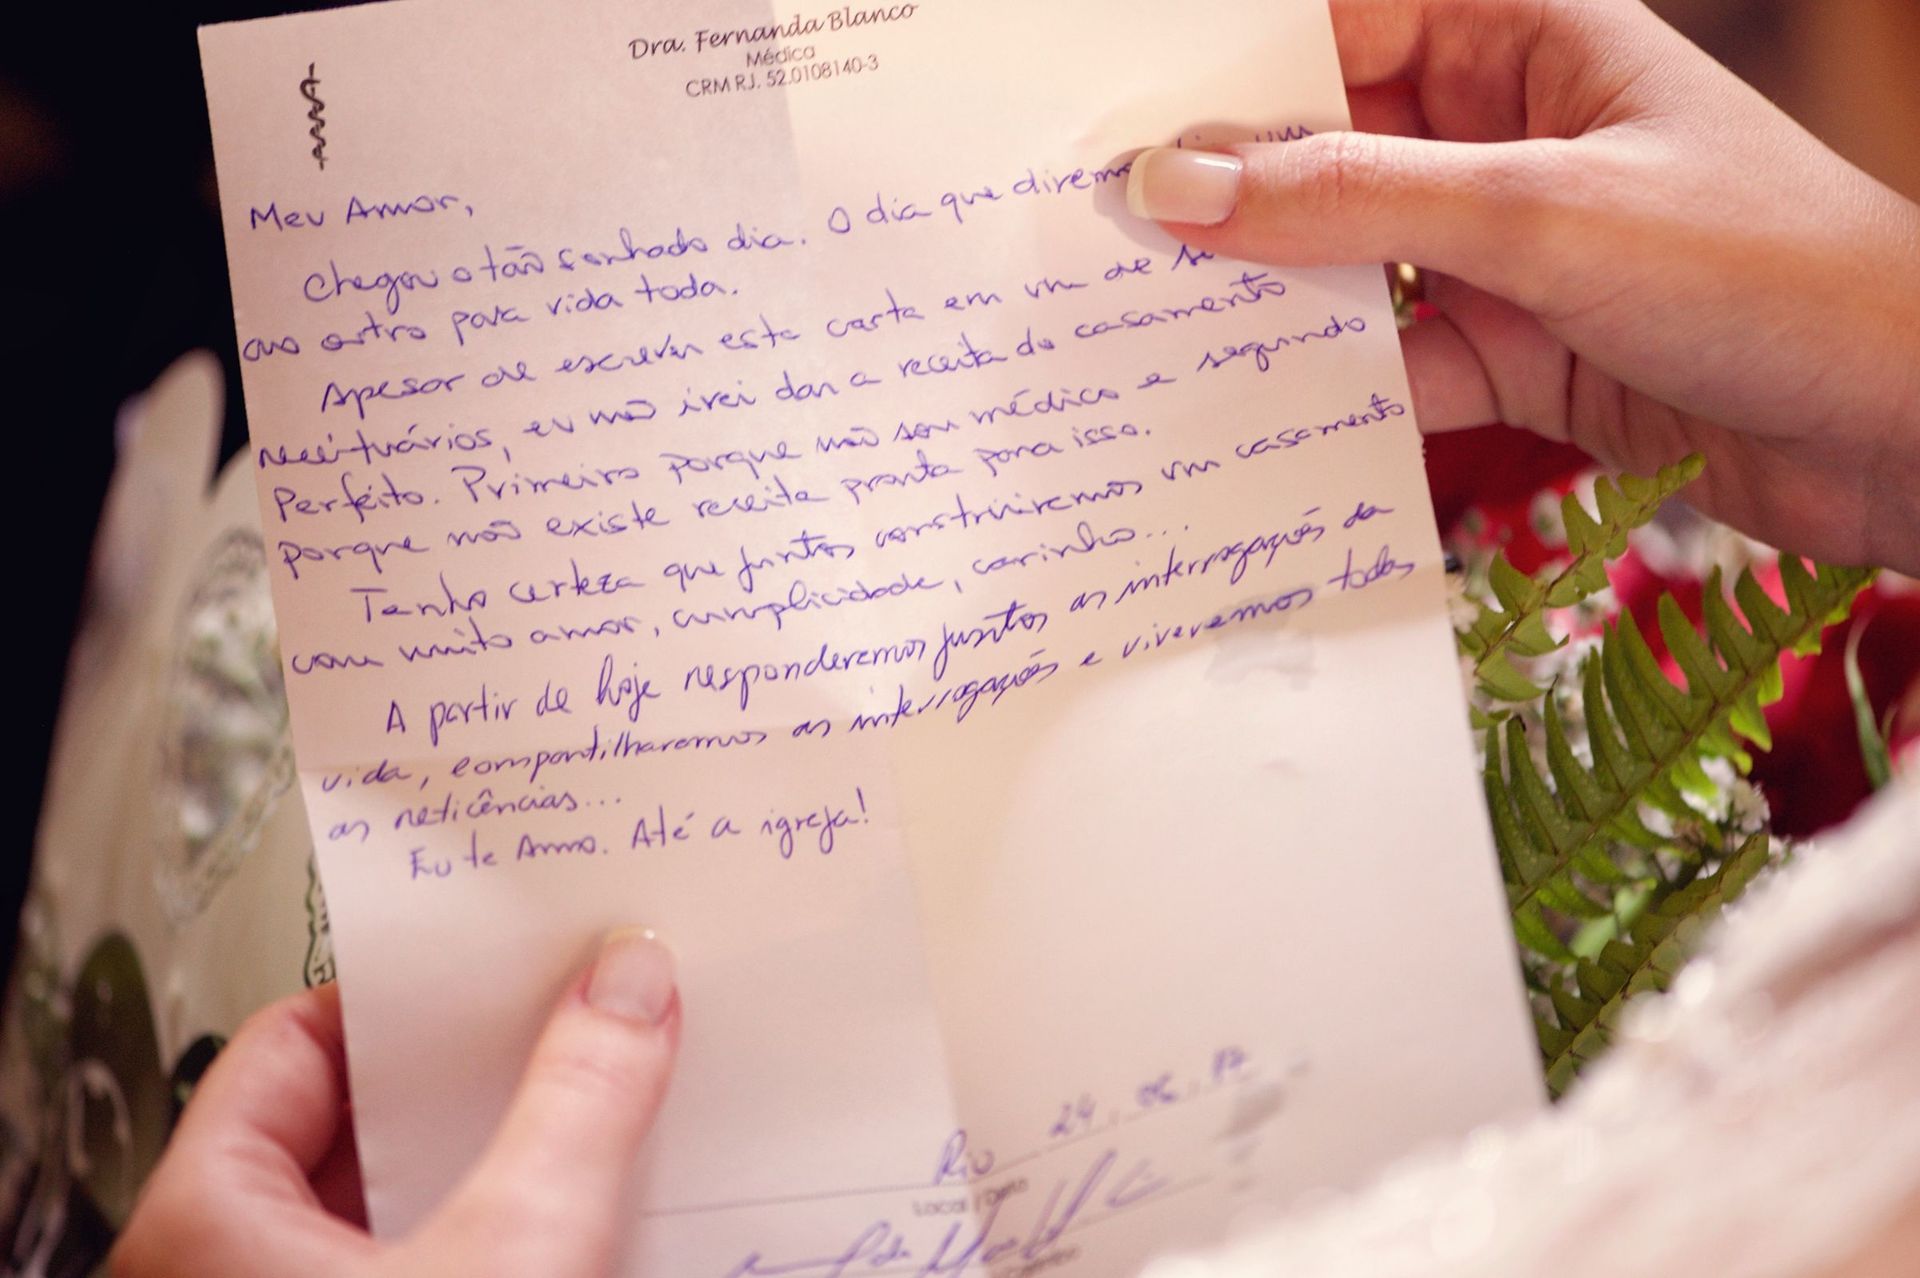 Dra. Fernanda Blanco
Médica
CRM RJ. 52.0108140-3
Meu Amor,
Chegou o tão sonhado dia. O dia que diremos um
ao outro para vida toda.
Apesar de escrever esta carta em um de
receituários, eu não irei dar a receita do casamento
Perfeito. Primeiro porque não sou médico e segundo
porque não existe receita pronta para isso.
Tenho certeza que juntos construiremos um casamento
com muito amor, cumplicidade, carinho...
A partir de hoje responderemos juntos as interrogações da
vida, compartilharemos as interrogações e viveremos todas
as reticências...
Eu te Amo. Até a igreja!
Rio 24.06.17
Local / Data